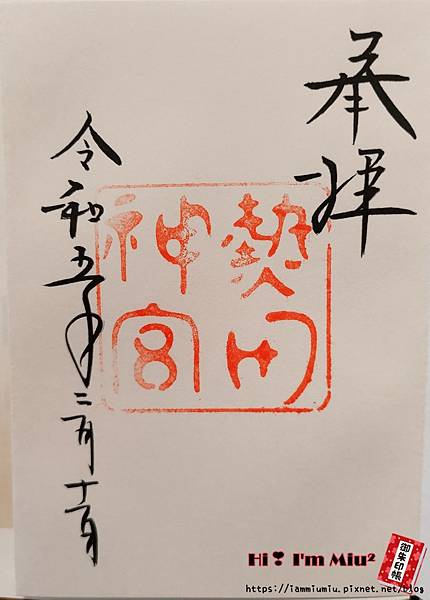 奉拝
熱田
神宮
令和五年二月十一日
御朱印帳
Hi❣ I'm Miu²
https://iammiumiu.pixnet.net/blog